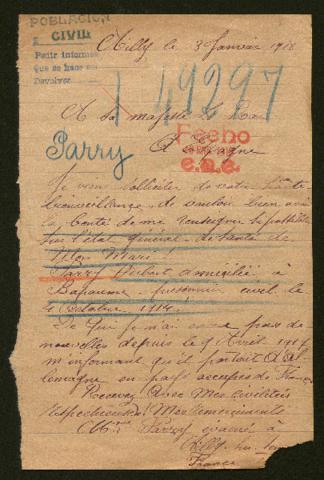 POBLACION
CIVIL
Pedir informes
que se hace en
Devolver.
Ailly le 3 Janvier 1918
149297
A sa majesté le Roi
d'Espagne
Fecho
Parry
Je viens solliciter de votre haute
bienveillance de vouloir bien avoir
la bonté de me renseigner si possible
sur l'état général de santé de
Mon Mari!
Parry domicilié à
Bapaume prisonnier civil le
4 Octobre 1914.
Je n'ai encore pas de
nouvelles depuis le 9 Avril 1917
m'informant qu'il partait d'Al
lemagne en pays occupés de France
Recevez avec Mes civilités
respectueuses Mes remerciements
Parry évacué à
Ailly
France